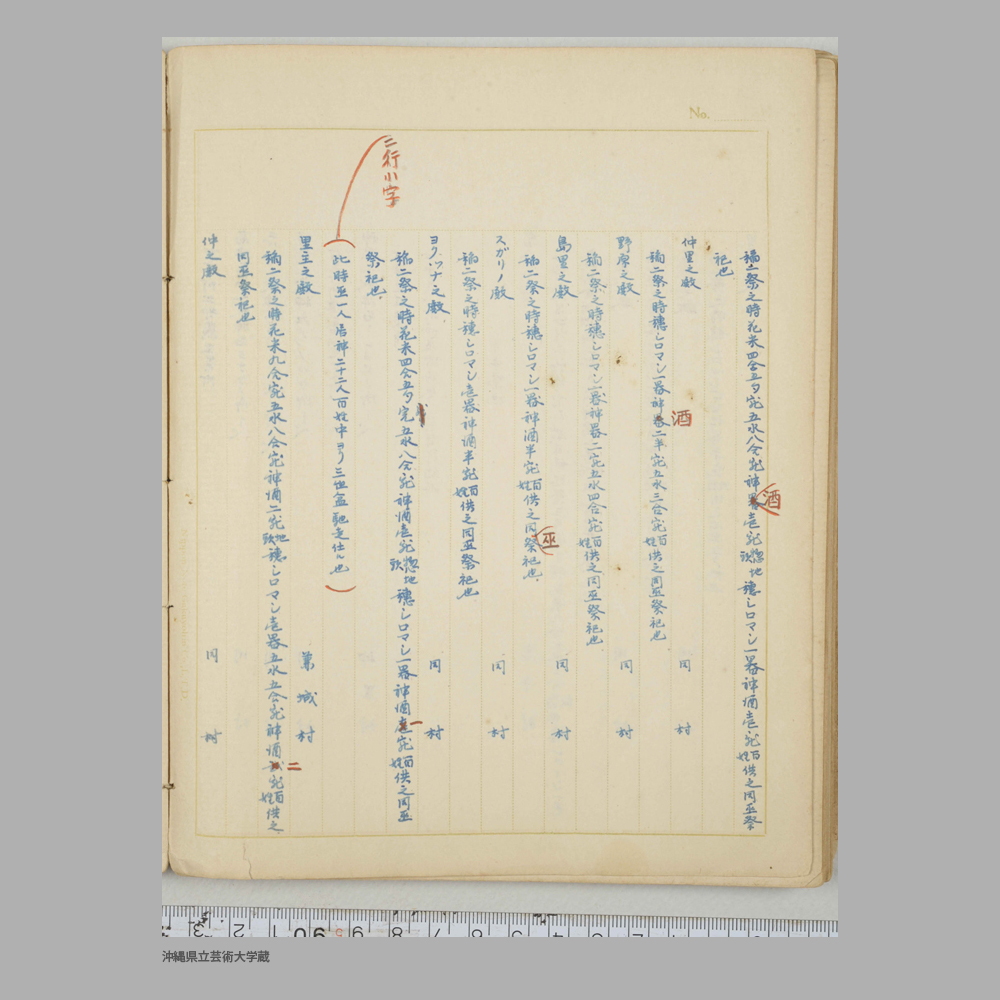 No.
稲二祭之時花米四合五夕宛五水八合宛神酒壱宛惣地頭穂シロマシ一器神酒壱宛百姓供之同巫祭
祀也
仲里之殿 同村
稲二祭之時穂シロマシ一器神酒二半宛五水三合宛百姓供之同巫祭祀也
野原之殿 同村
稲二祭之時穂シロマシ一器神器二宛五水四合宛百姓供之同巫祭祀也
島里之殿 同村
稲二祭之時穂シロマシ一器神酒半宛百姓供之同巫祭祀也
スガリノ殿 同村
稲二祭之時穂シロマシ壱器神酒半宛百姓供之同巫祭祀也
ヨクツナ之殿 同村
稲二祭之時花米四合五夕宛五水八合宛神酒壱宛惣地頭穂シロマシ一器神酒一宛百姓供之同巫
祭祀也
二行小字
(此時巫一人居神二十二人百姓中ヨリ三世盆馳走仕ル也)
里主之殿 城村
稲二祭之時花米九合宛五水八合宛神酒二宛地頭穂シロマシ壱器五水五合宛神酒二宛百姓供之
同巫祭祀也
仲之殿 同村
沖縄県立芸術大学蔵